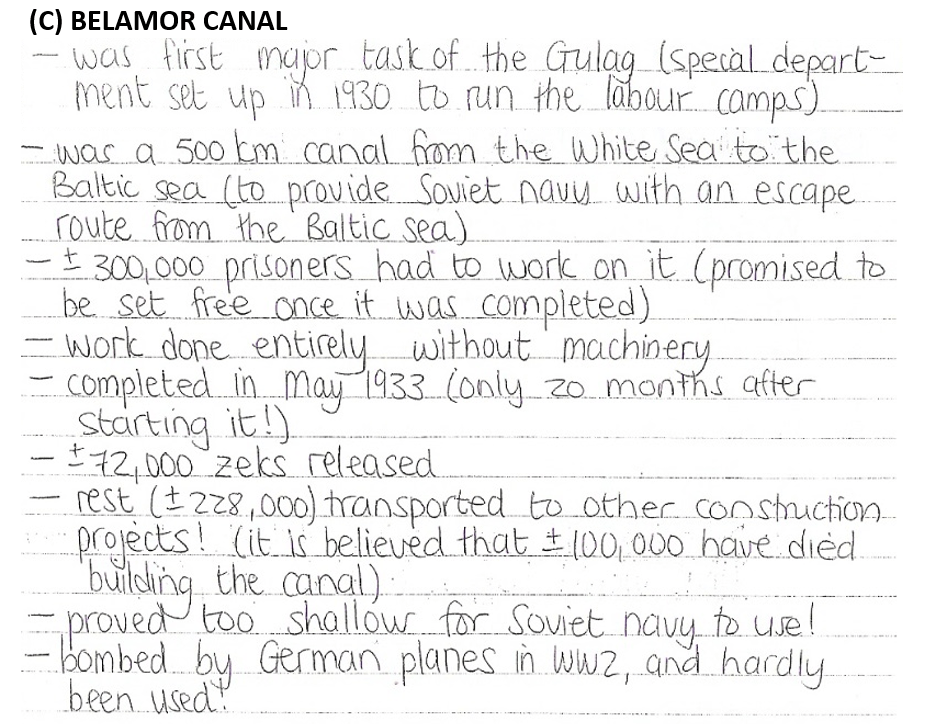 (C) BELAMOR CANAL
– was first major task of the Gulag (special depart-
ment set up in 1930 to run the labour camps)
– was a 500 km canal from the White Sea to the
Baltic sea (to provide Soviet navy with an escape
route from the Baltic sea)
– ± 300,000 prisoners had to work on it (promised to
be set free once it was completed)
– work done entirely without machinery
– completed in May 1933 (only 20 months after
starting it!)
– ±72,000 zeks released
– rest (±228,000) transported to other construction
projects! (it is believed that ± 100,000 have died
building the canal)
– proved too shallow for Soviet navy to use!
– bombed by German planes in WW2, and hardly
been used!